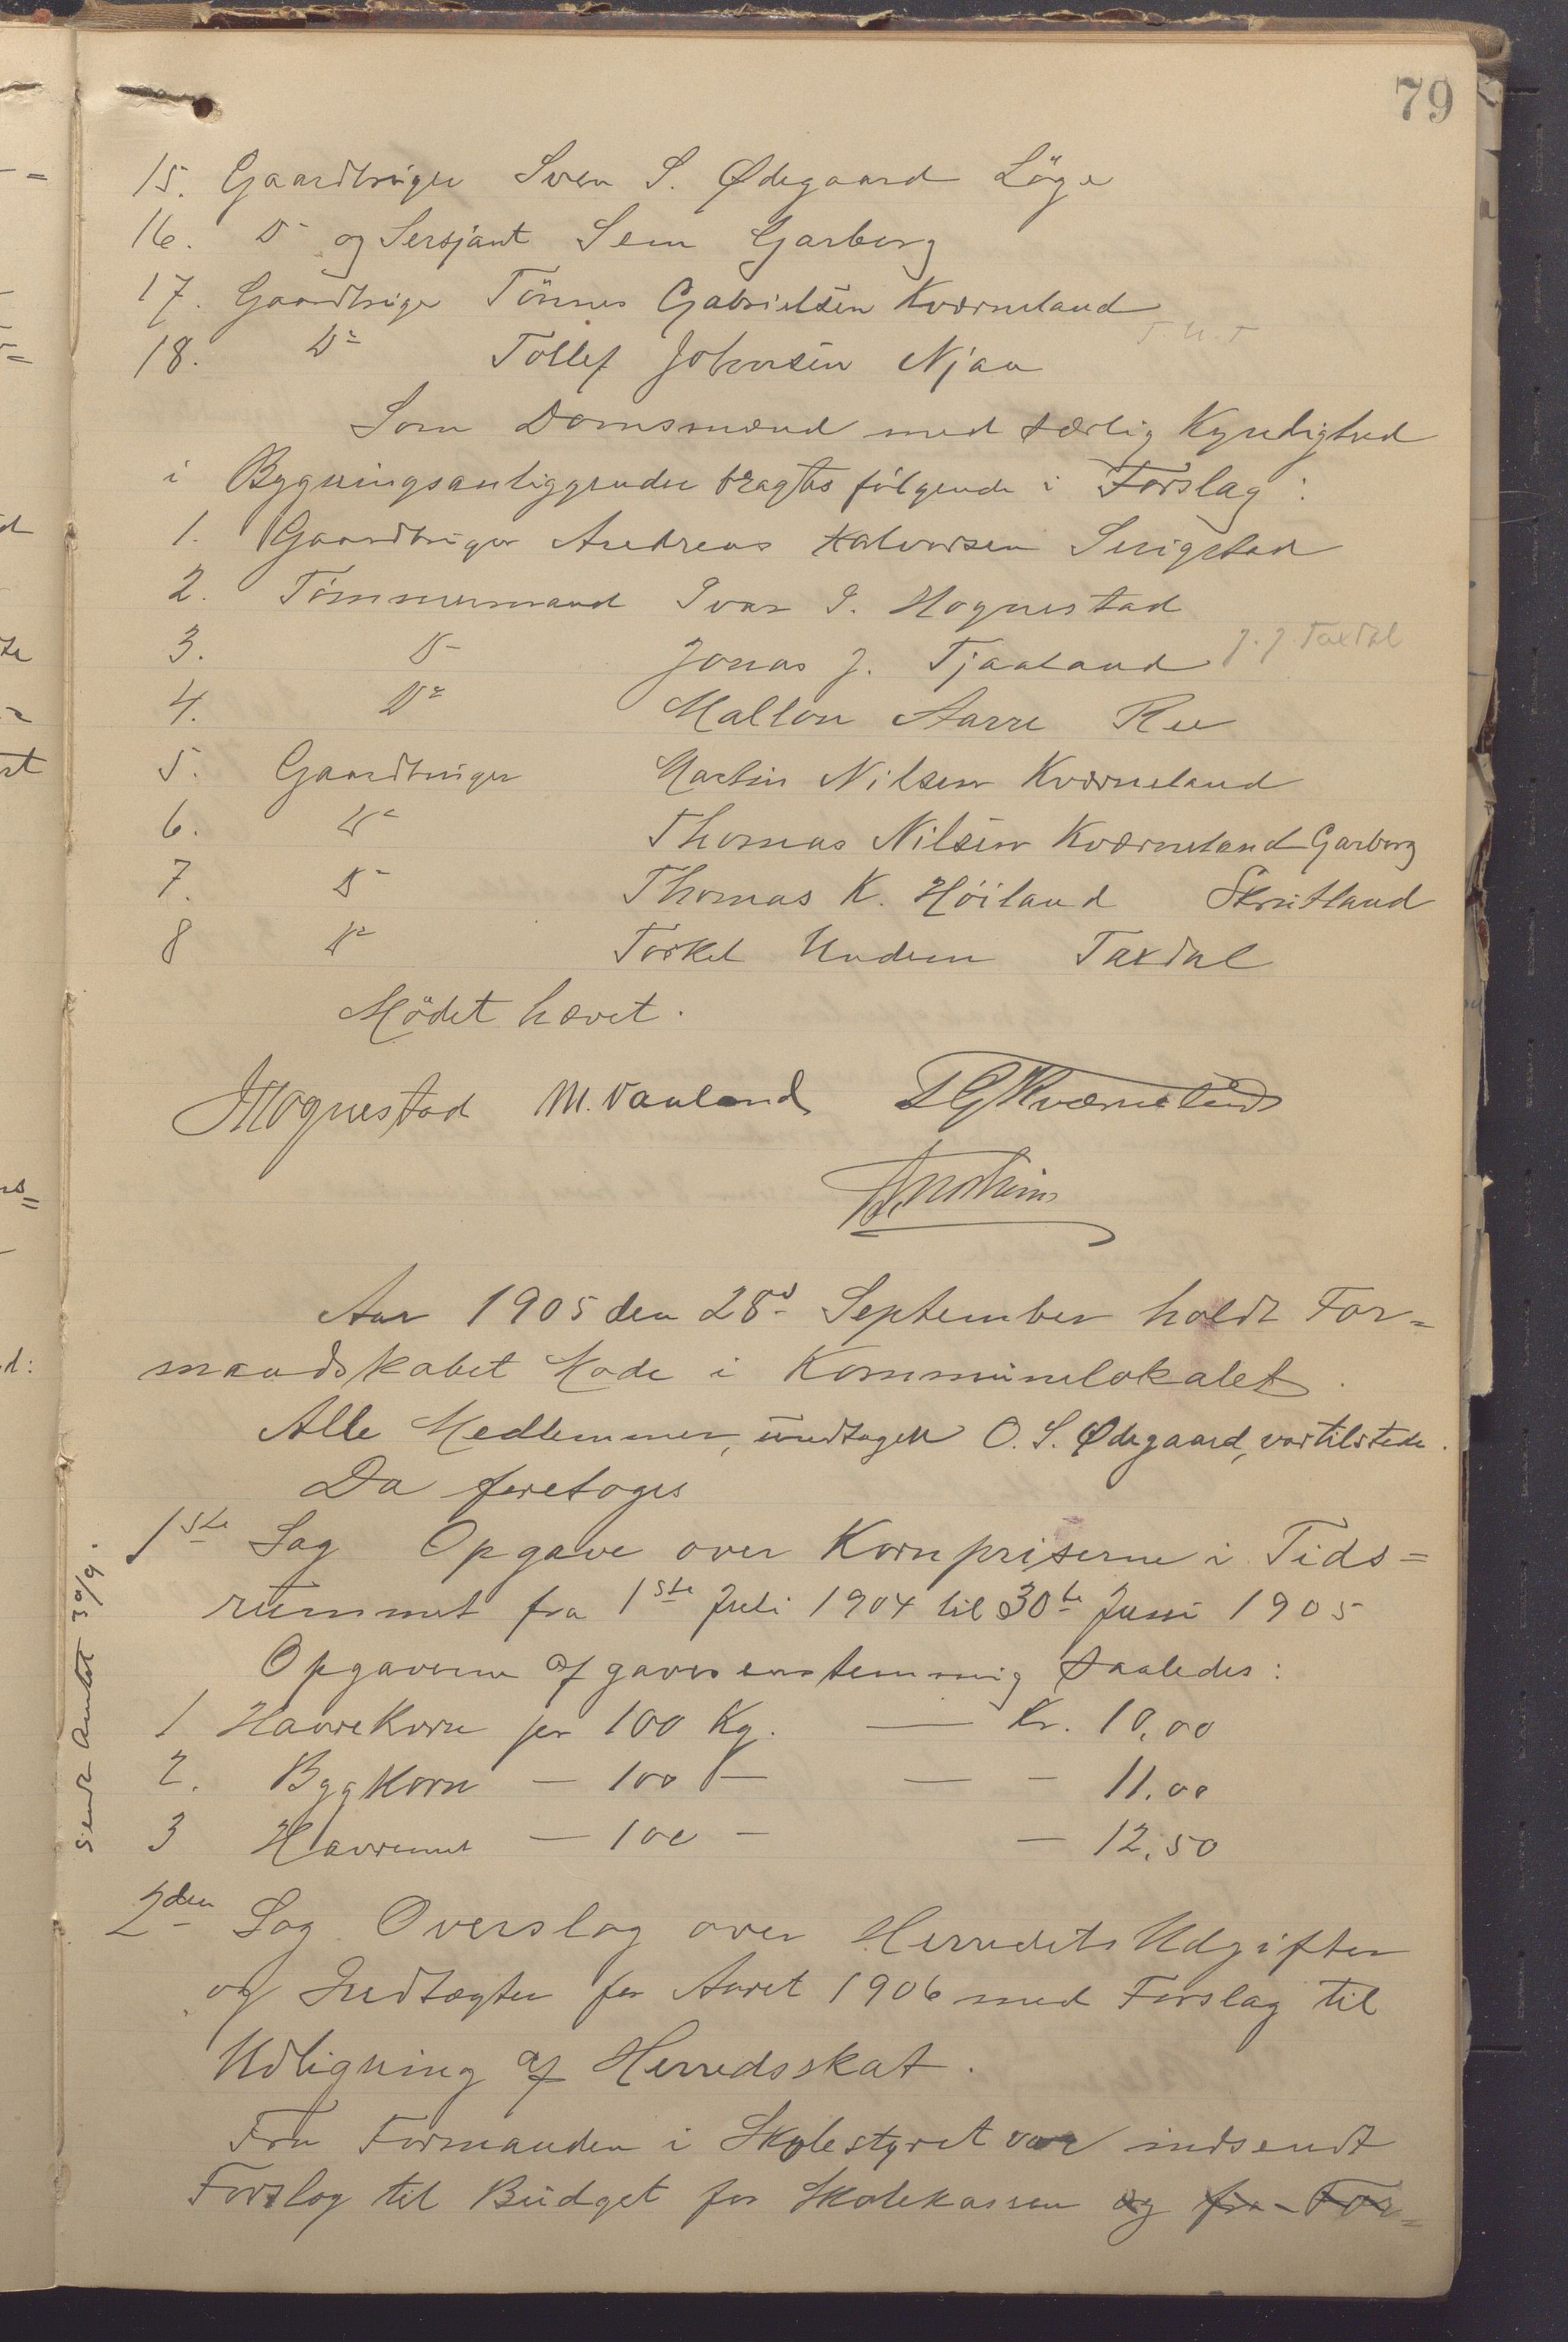 79
15. Gaardbruger Sven S. Ødegaard Löge
16. Do og Sersjant Sem Garborg
17. Gaardbruger Tönnes Gabrielsen Kværneland
18. Do Tollef Johnsen Njaa
Som Domsmænd med særlig Kyndighed
i Bygningsanliggender bragtes følgende i Forslag:
1. Gaardbruger Andreas Halvorsen Serigstad
2. Tømmermand Ivar I. Hognestad
3. Do Jonas J. Tjaaland J. J. Taxdal
4. Do Mallon Aarre Re
5. Gaardbruger Martin Nilsen Kværneland
6. Do Thomas Nilsen Kværneland Garborg
7. Do Thomas K. Höiland Skrutland
8 Do Torkel Undem Taxdal
Mödet hævet.
Hognestad M. Vauland T G Kværneland
Aar 1905 den 28d September holdt For=
mandskabet Møde i Kommunelokalet.
Alle Medlemmer, undtagen O. S. Ødegaard, var tilstede.
Da foretoges
1ste Sag Opgave over Kornpriserne i Tids=
rummet fra 1ste Juli 1904 til 30te Juni 1905
Opgaverne afgaves enstemmig saaledes:
1 Havrekorn per 100 Kg. — Kr. 10,00
2. Bygkorn — 100 — — - 11.00
3 Havremel — 100 - — 12,50
Sendt Amtet 30/9.
2den Sag Overslag over Herredets Udgifter
og Indtægter for Aaret 1906 med Forslag til
Udligning af Herredsskat.
Fra Formanden i Skolestyret var indsendt
Forslag til Budget for Skolekassen og fra For=